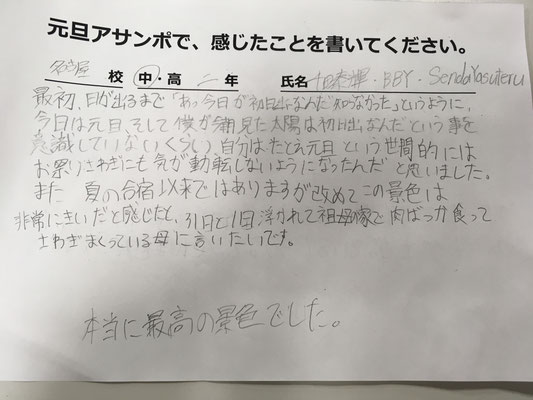 元旦アサンポで、感じたことを書いてください。
名古屋 校 中・高 二 年 氏名 泰輝・BBY・SendaYasuteru
最初、日が出るまで「あっ今日が初日出なんだ知らなかった」というように、
今日は元日、そして僕が今朝見た太陽は初日出なんだという事を
意識していないくらい、自分はたとえ元日という世間的には
お祭りさわぎにも気が動転しないようになったんだと思いました。
また、夏の合宿以来ではありますが改めてこの景色は
非常にきれいだと感じたと、31日と1日浮かれて祖母家で肉ばっか食って
さわぎまくっている母に言いたいです。
本当に最高の景色でした。